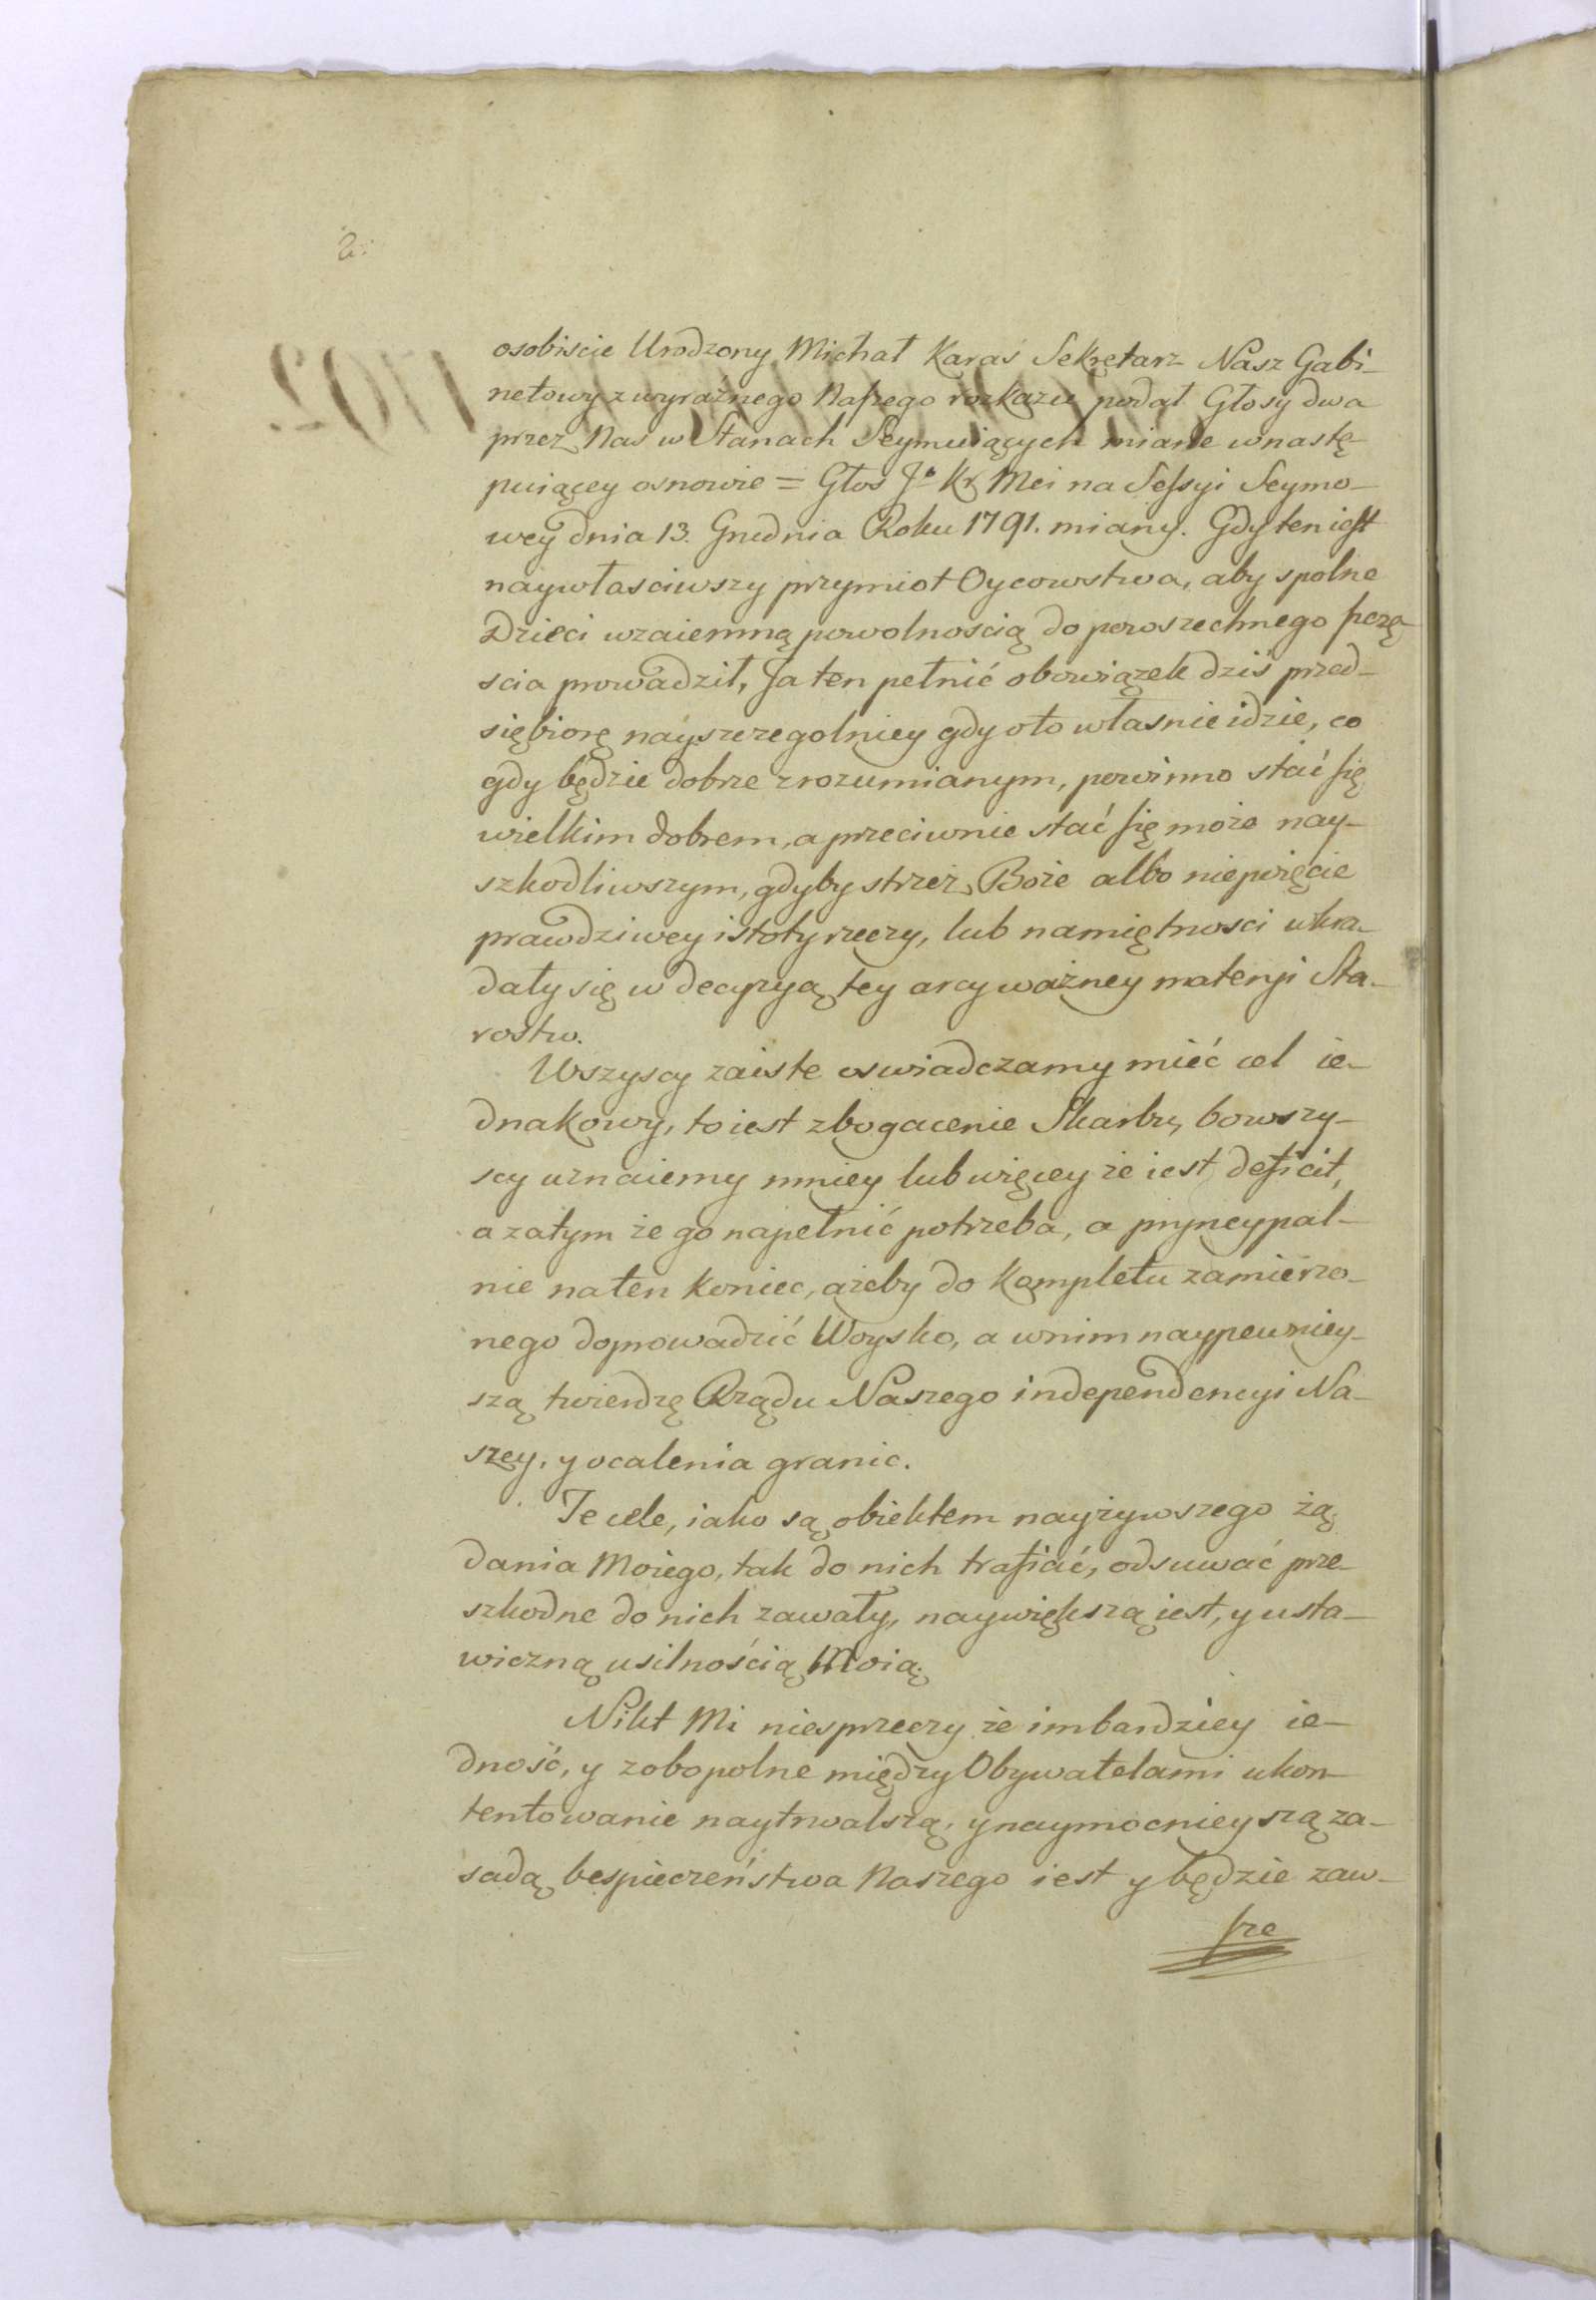 2.
osobiscie Urodzony Michał Karaś Sekretarz Nasz Gabi-
netowy z wyraźnego Naszego rozkazu podał Głosy dwa
przez Nas w Stanach Seymuiących miane w nastę-
puiącey osnowie = Głos Jo Kr Mci na Sessyi Seymo-
wey dnia 13. Grudnia Roku 1791. miany. Gdy ten iest
naywłasciwszy przymiot Oycowstwa, aby spolne
Dzieci wzaiemną powolnoscią do powszechnego szczę-
scia prowadził, Ja ten pełnić obowiązek dziś przed-
siębiorę nayszczegolniey gdy oto własnie idzie, co
gdy będzie dobrze zrozumianym, powinno stać się
wielkim dobrem, a przeciwnie stać się może nay-
szkodliwszym, gdyby strzeż Boże albo niepoięcie
prawdziwey istoty rzeczy, lub namiętnosci wkra-
dały się w decyzyą tey arcyważney materyi Sta-
rostw.
Wszyscy zaiste oswiadczamy mieć cel ie-
dnakowy, to iest zbogacenie Skarbu, bo wszy-
scy uznaiemy mniey lub więcey że iest deficit,
a zatym że go napełnić potrzeba, a pryncypal-
nie na ten koniec, ażeby do kompletu zamierzo-
nego doprowadzić Woysko, a w nim naypewniey-
szą twierdzę Rządu Naszego independencyi Na-
szey, y ocalenia granic.
Te cele, iako są obiektem nayżywszego żą-
dania Moiego, tak do nich trafiać, odsuwać prze-
szkodne do nich zawały, naywiększą iest, y usta-
wiczną usilnością Moią.
Nikt Mi niesprzeczy że im bardziey ie-
dność, y zobopolne między Obywatelami ukon-
tentowanie naytrwalszą, y naymocnieyszą za-
sadą bespieczeństwa Naszego iest y będzie zaw-
sze